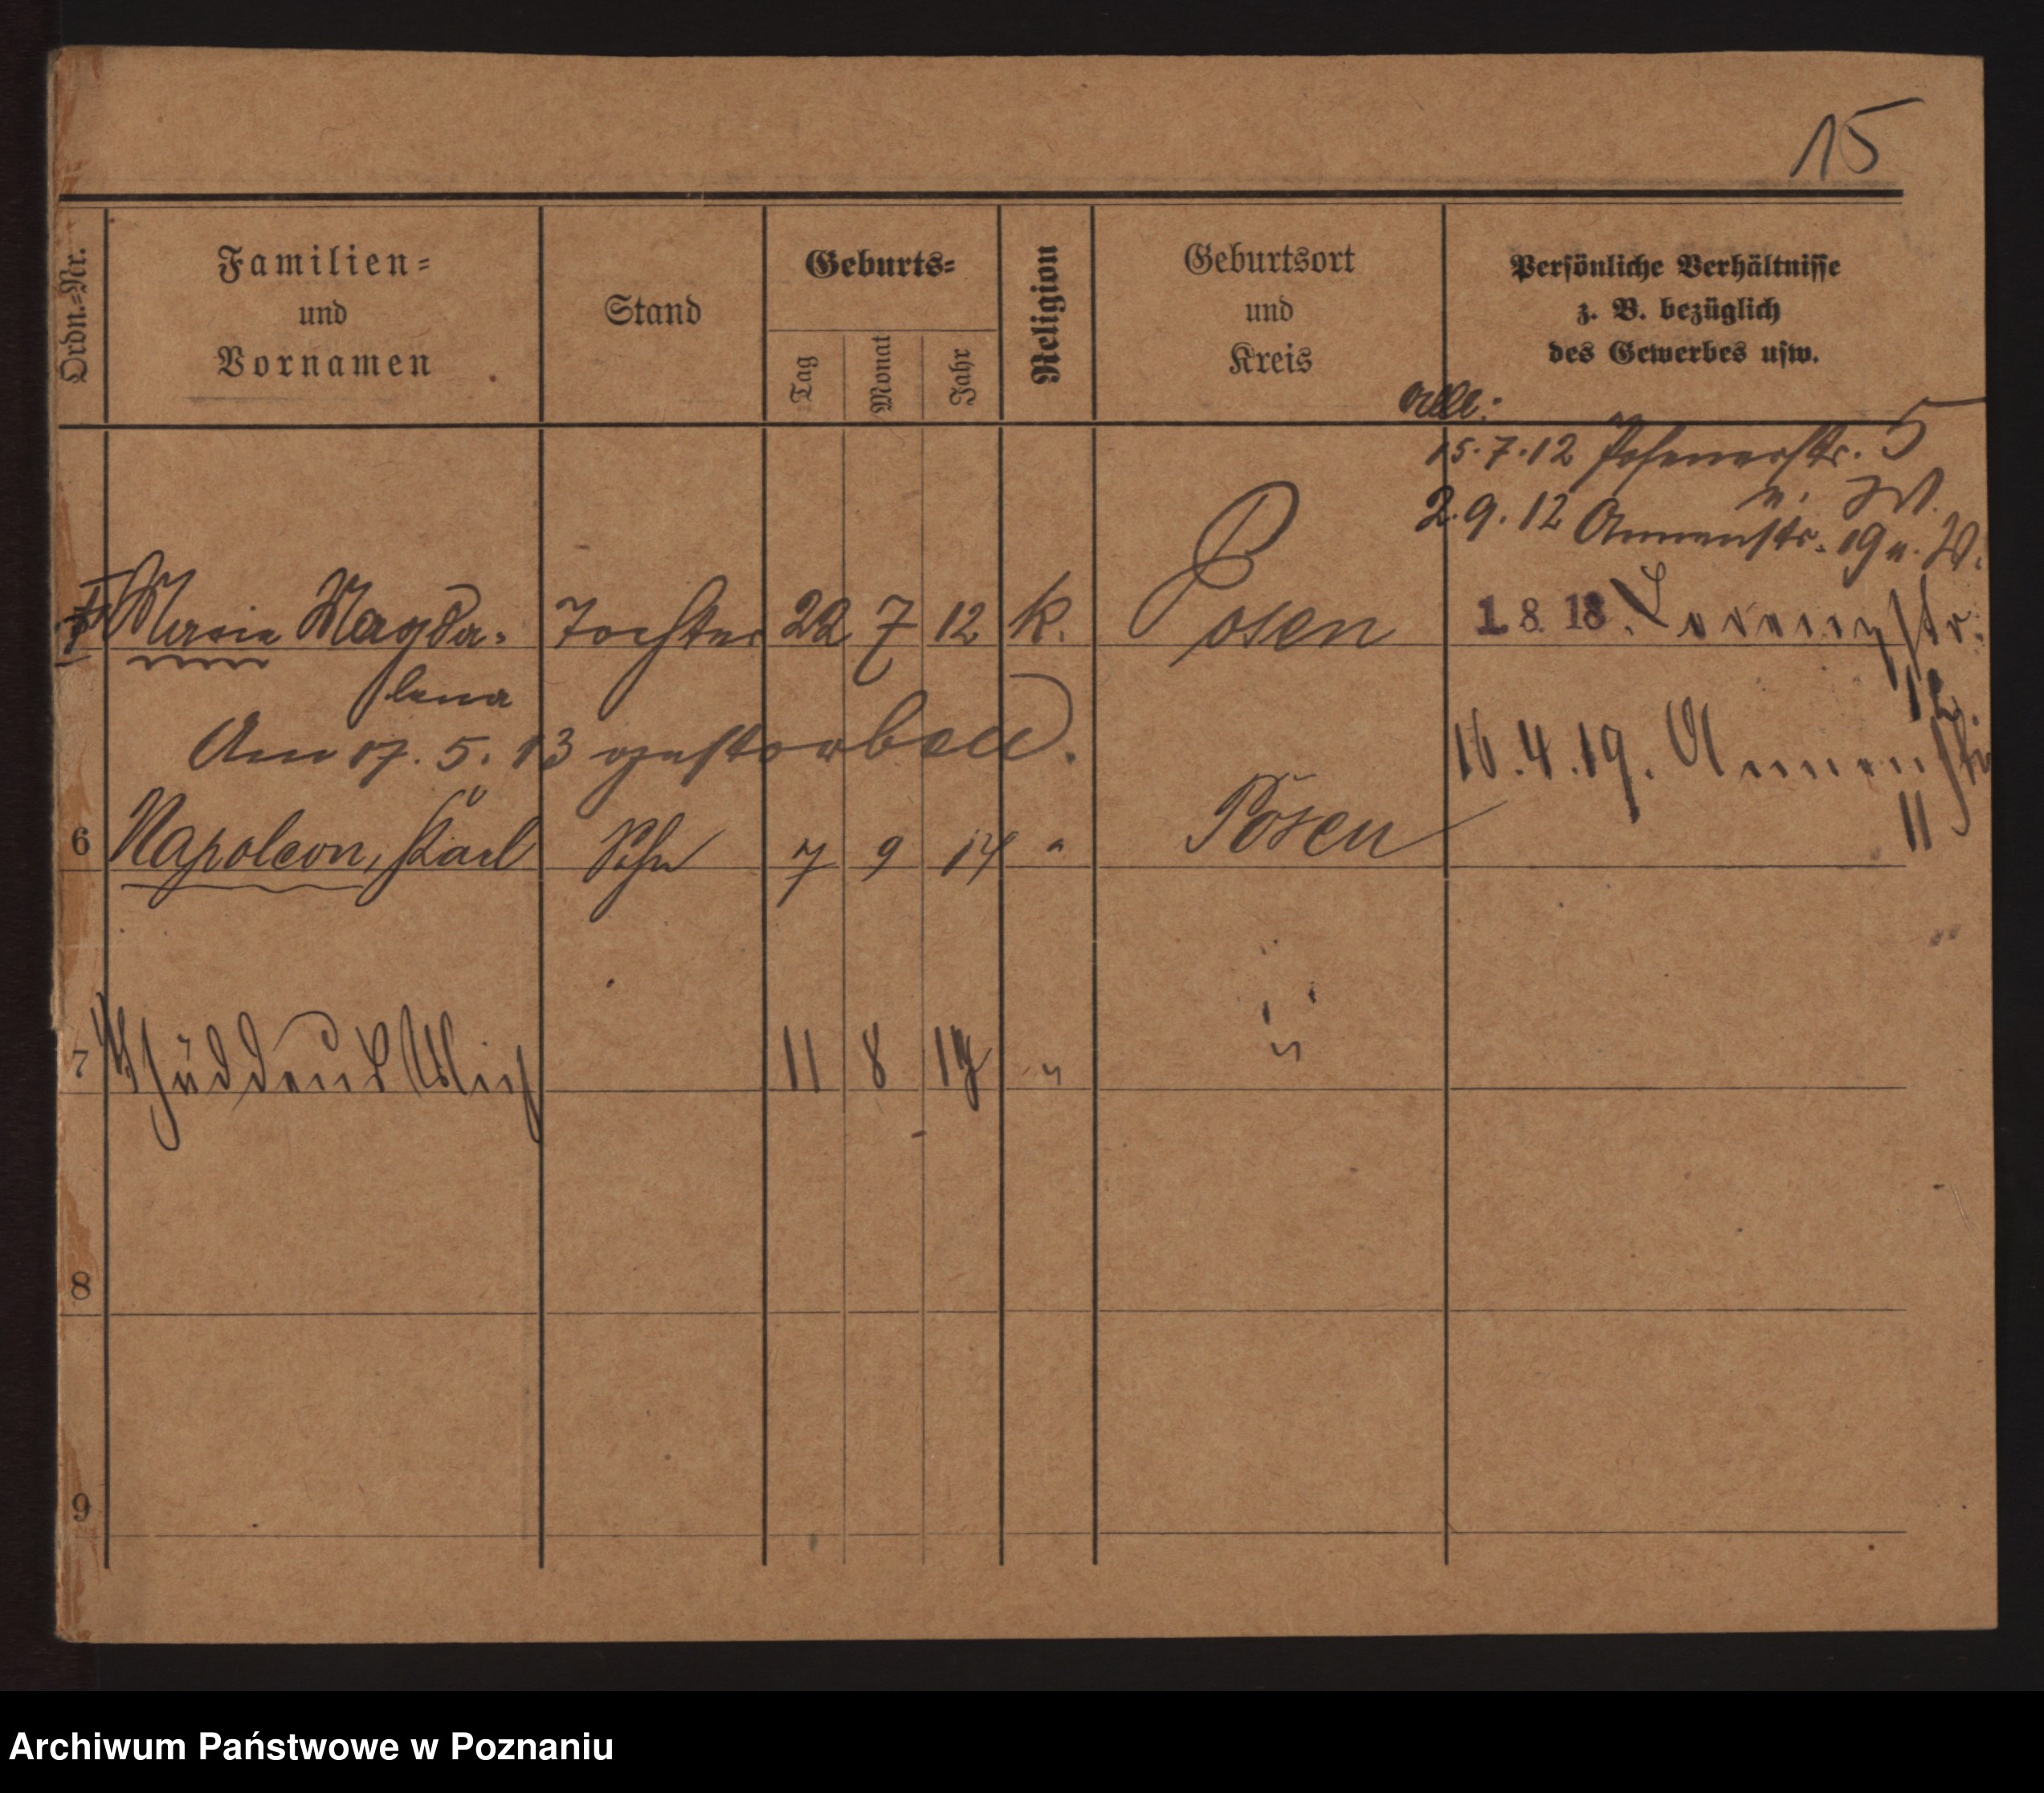 15
Ordn.-Nr.
Familien-
und
Vornamen
Stand
Geburts-
Tag
Monat
Jahr
Religion
Geburtsort
und
Kreis
Persönliche Verhältnisse
z. B. bezüglich
des Gewerbes usw.
alle:
15.7.12 Posenerstr. 5
u. W.
2.9.12 Annenstr. 19 u. W.
Maria Magda-
lena
Tochter 22 7 12 k. Posen
1. 8. 18.
Am 17. 5. 13 gestorben.
16.4.19. Annenstr
11
6 Napoleon, Karl Sohn 7 9 14 " Posen
7 11 8 19 " "
8
9
Archiwum Państwowe w Poznaniu